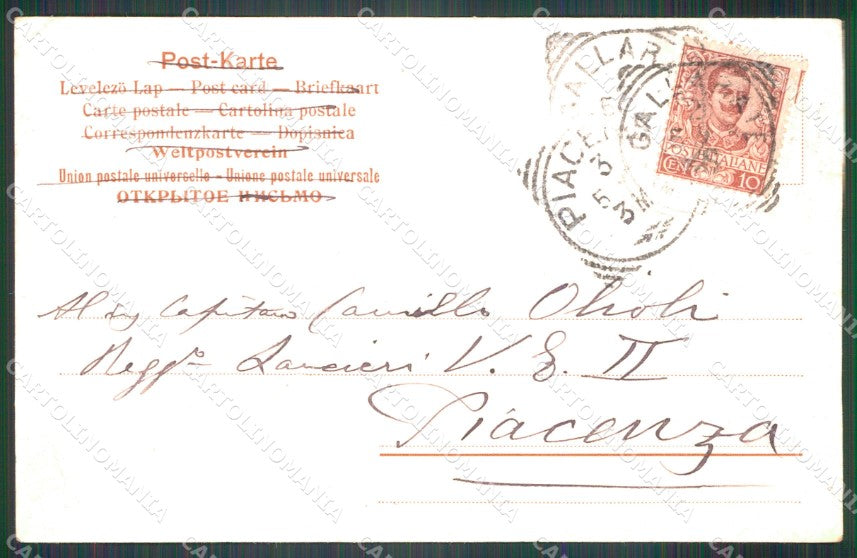 Post-Karte
Levelező Lap — Post card — Briefkaart
Carte postale — Cartolina postale
Correspondenzkarte — Dopisnica
Weltpostverein
Union postale universelle - Unione postale universale
ОТКРЫТОЕ ПИСЬМО
GALLAR
PIACENZA
5 3
POSTE ITALIANE
CENT 10
Al Sig Capitano Camillo Olioli
Regg.to Lancieri V. E. II
Piacenza
CARTOLINOMANIA